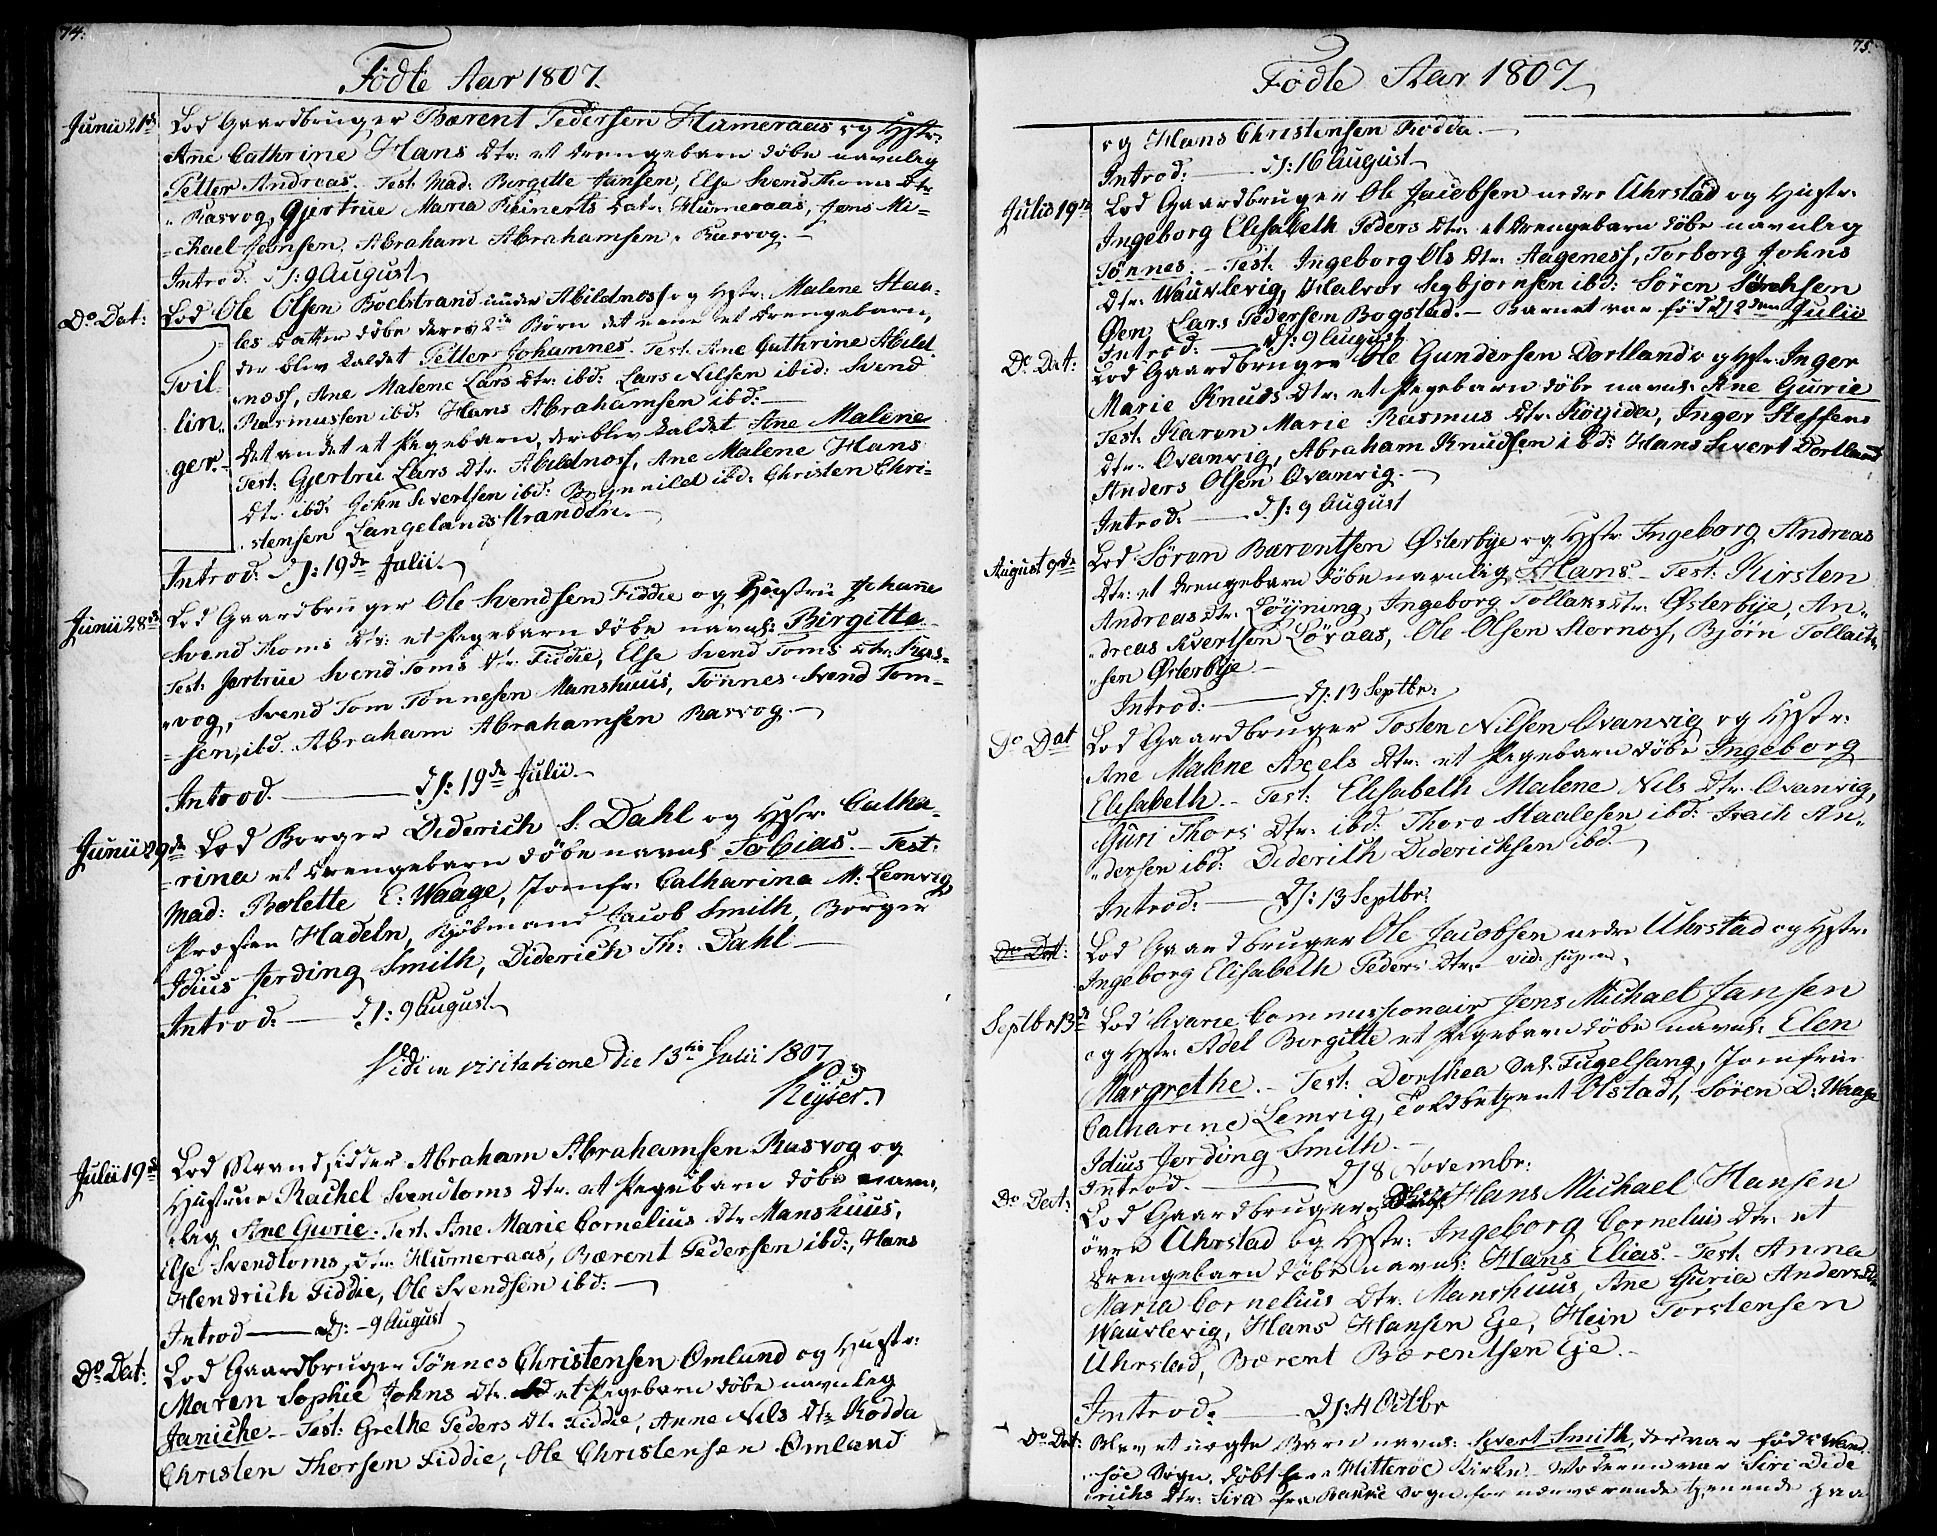 74.
Fødte Aar 1807.
Junii 21de Lod Gaardbruger Bærent Pedersen Humeraas og Hstr:
Ane Cathrine Hans Dtr: et Drengebarn døbe navnlig
Petter Andreas. Test: Mad: Birgitte Jansen, Else Svend Thoms Dtr.
Rasvog, Gjertrue Maria Reinerts Datr: Humeraas, Jens Mi-
-chael Jansen, Abraham Abrahamsen Rasvog.
Introd: d: 9 August
Do Dat: Lod Ole Olsen Bochstrand under Abildnæss og Hstr: Malene Staa-
les Datter døbe deres 2de Børn det eene et Drengebarn,
der blev kaldet Petter Johannes. Test: Ane Cathrine Abild-
næss, Ane Malene Lars Dtr: ibd: Lars Nilsen ibid: Svend
Rasmussen ibd: Hans Abrahamsen ibd:
Tvil
lin-
ger.
Det andet et Pigebarn, der blev kaldet Ane Malene
Test: Gjertru Lars Dtr: Abildnæss, Ane Malene Hans
Dtr: ibd: John Sivertsen ibd: ibd: Christen Chri-
stensen Langelandsstranden.
Introd: d: 19de Julii.
Junii 28de Lod Gaardbruger Ole Svendsen Fiddie og Hustrue Johanne
Svend Thoms Dtr: et Pigebarn døbe navnl: Birgitta.
Test: Jertrue Svend Toms Dtr: Fiddie, Else Svend Toms Dtr: Ras-
vog, Svend Tom Tønnesen Manshuus, Tønnes Svend Tom-
-sen, ibd. Abraham Abrahamsen Rasvog.
Introd. d: 19de Julii.
Junii 29de Lod Borger Diderich S: Dahl og Hstr: Catha-
-rina et Drengebarn døbe navnl: Tobias. Test:
Mad: Bolette C: Waage, Jomfr: Catharina M: Lemvig
Præsten Hadeln, Kjøbmand Jacob Smith, Borger
Idius Jerding Smith, Diderich Th: Dahl
Introd: d: 9 August
Vidi in visitatione die 13tio Julii 1807
Keyser.
Julii 19de Lod Strandsidder Abraham Abrahamsen Rasvog og
Hustrue Rachel Svendtoms Dtr: et Pigebarn døbe navn-
lig Ane Gurie. Test: Ane Marie Cornelius Dtr Manshuus,
Else Svendtoms Dtr: Humeraas, Bærent Pedersen ibd:, Hans
Hendrich Fiddie, Ole Svendsen ibd:
Introd d: 9 August
Do Dat: Lod Gaardbruger Tønnes Christensen Omlund og Hustr:
Maren Sophie Johns Dtr. et Pigebarn døbe navnlig
Janiche. Test: Grethe Peders Dtr Fiddie, Anne Nils Dtr Rodda
Christen Thorsen Fiddie, Ole Christensen Omland
75.
Fødte Aar 1807
og Hans Christensen Rodda.
Introd: d: 16 August
Julii 19de Lod Gaardbruger Ole Jacobsen nedre Uhrstad og Hustr:
Ingeborg Elisabeth Peders Dtr: et Drengebarn døbe navnlig
Tønnes. Test: Ingeborg Ols Dtr: Aageness, Torborg Johns
Dtr: Wauvlevig, Halvor Segbjørnsen ibd: Søren Sørensen
Øen, Lars Pedersen Bogstad. Barnet var født d 2den Julii
Introd: d: 9 August
Do Dat: Lod Gaardbruger Ole Gundersen Dortland og Hstr: Inger
Marie Knuds Dtr: et Pigebarn døbe navnl: Ane Gurie
Test: Karen Marie Rasmus Dtr: Inger Steffens
Dtr: Ovanvig, Abraham Knudsen ibd: Hans Sivert Dortland
Anders Olsen Ovanvig.
Introd: d: 9 August
August 9de Lod Søren Bærentsen Østerbye og Hstr: Ingeborg Andreas
Dtr: et Drengebarn døbe navnlig Hans. Test: Kirsten
Andreas Dtr: Løyning, Ingeborg Tollaks Dtr: Østerbye, An-
dreas Sivertsen Løvaas, Ole Olsen Stornæss, Bjørn Tollach-
sen Østerbye
Introd: d: 13 Septbr:
Do Dat Lod Gaardbruger Tosten Nilsen Ovanvig og Hstr:
Ane Malene Axels Dtr: et Pigebarn døbe Ingeborg
Elisabeth. Test: Elisabeth Malene Nils Dtr: Ovanvig,
Guri Thors Dtr: ibd: Thore Staalesen ibd: Isach An-
dersen ibd: Diderich Diderichsen ibd.
Introd: d: 13 Septbr:
Do Dat: Lod Gaardbruger Ole Jacobsen nedre Uhrstad og Hstr:
Ingeborg Elisabeth Peders Dtr: vid: supra
Septbr 13de Lod Commissionair Jens Michael Jansen
og Hstr: Adel Birgitte et Pigebarn døbe navnl: Elen
Margrethe. Test: Dorthea Dat: Fugelsang, Jomfrue
Catharine Lemvig, Toldbetjent Olstadt, Søren D: Waage
Idius Jerding Smith.
Introd. d 8 Novembr:
Do Dat: Lod Gaardbruger Hans Michael Hansen
øvre Uhrstad og Hstr: Ingeborg Cornelius Dtr: et
Drengebarn døbe navnl: Hans Elias. Test: Anna
Maria Cornelius Dtr: Manshuus, Ane Guria Anders Dtr
Wauvlevig, Hans Hansen Eje, Hein Torstensen
Uhrstad, Bærent Bærentsen Eje.
Introd: d: 4 Octbr
Do Dat: Blev et uægte Barn navnl: Sivert Smith, der var født i
Sogn, døbt her i Hitterøe Kirke. Moderen var Siri Dide
richs Dtr: Sira fra Bakke Sogn for nærværende tjenende paa